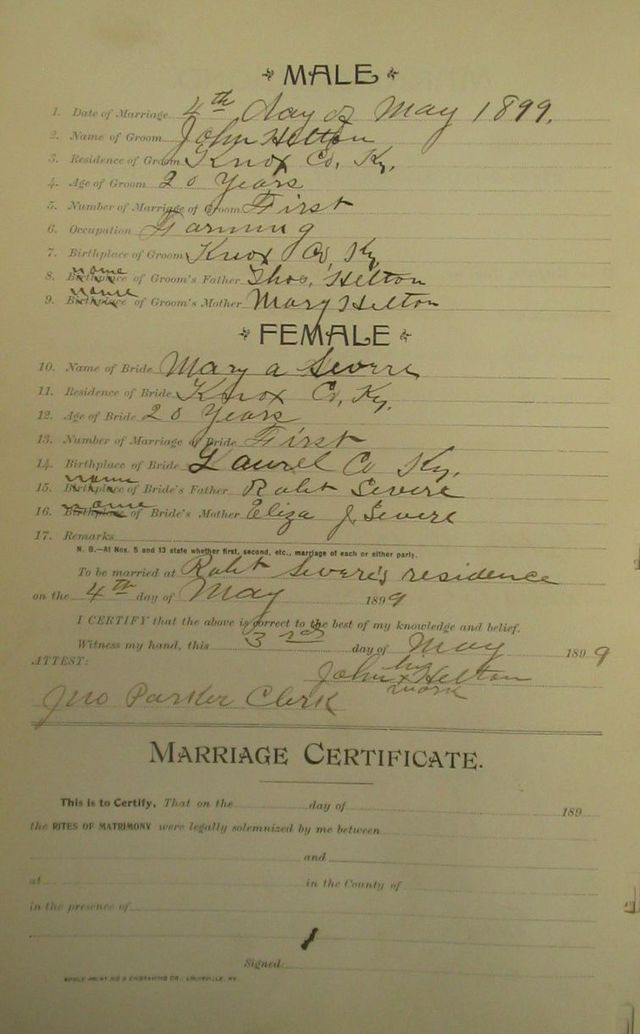 MALE
1. Date of Marriage 4th day of May 1899.
2. Name of Groom John Helton
3. Residence of Groom Knox Co, Ky.
4. Age of Groom 20 Years
5. Number of Marriage of Groom First
6. Occupation Farming
7. Birthplace of Groom Knox Co, Ky
8. Birthplace name of Groom's Father Thos, Helton
9. Birthplace name of Groom's Mother Mary Helton
FEMALE
10. Name of Bride Mary a Severe
11. Residence of Bride Knox Co, Ky.
12. Age of Bride 20 Years
13. Number of Marriage of Bride First
14. Birthplace of Bride Laurel Co Ky.
15. Birthplace name of Bride's Father Robt Severe
16. Birthplace name of Bride's Mother Eliza J, Severe
17. Remarks
N. B.—At Nos. 5 and 13 state whether first, second, etc., marriage of each or either party.
To be married at Robt Severe's residence
on the 4th day of May 1899
I CERTIFY that the above is correct to the best of my knowledge and belief.
Witness my hand, this 3rd day of May 1899
ATTEST: John his x mark Helton
Jno Parker Clerk
MARRIAGE CERTIFICATE.
This is to Certify, That on the day of 189
the RITES OF MATRIMONY were legally solemnized by me between
and
at in the County of
in the presence of
Signed: